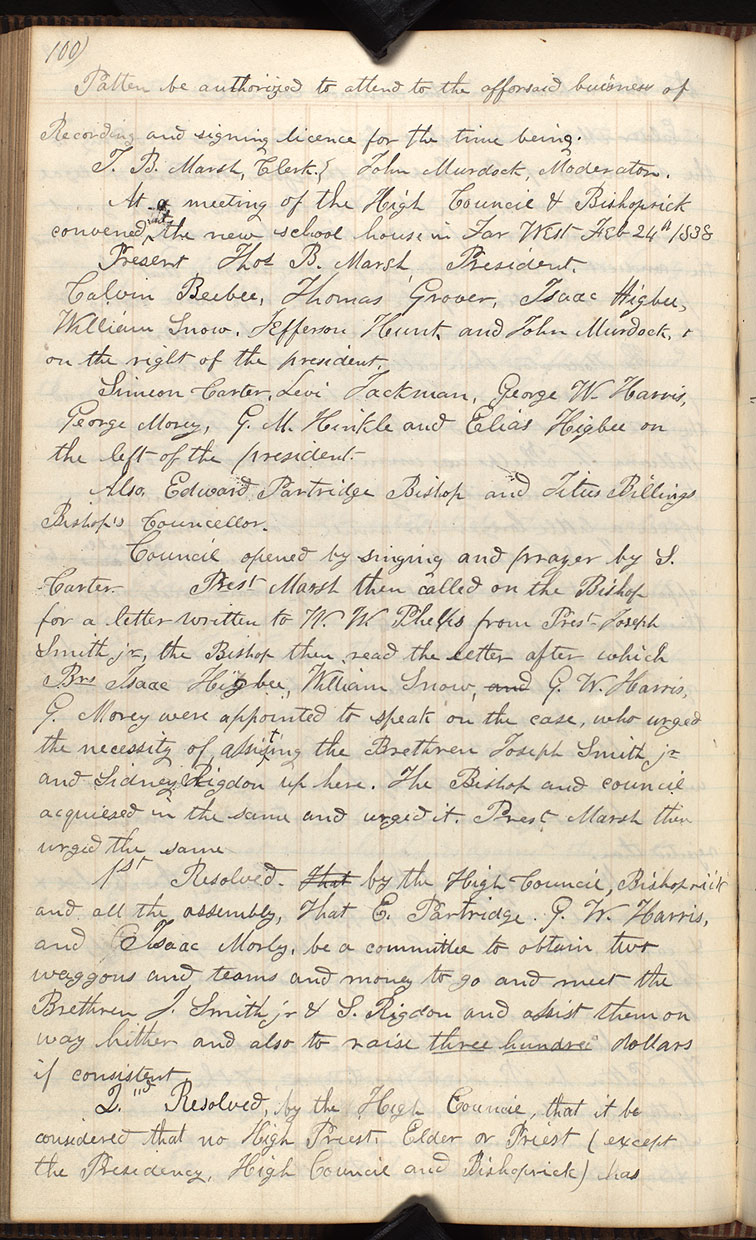 100)
Patten be authorized to attend to the afforsaid buisness of
Recording and signing licence for the time being.
T. B. Marsh, Clerk.} John Murdock, Moderator.
At a meeting of the High Council & Bishoprick
convened at the new school house in Far West Feb 24th 1838
Present, Thos B. Marsh, President.
Calvin Beebee, Thomas Grover, Isaac Higbee,
William Snow, Jefferson Hunt, and John Murdock,
on the right of the president,
Simeon Carter, Levi Jackman, George W. Harris,
George Morey, G. M. Hinkle and Elias Higbee on
the left of the president.
Also, Edward Partridge Bishop and Titus Billings
Bishop's Councellor.
Council opened by singing and prayer by S.
Carter. Prest Marsh then called on the Bishop
for a letter written to W. W. Phelps from Prest Joseph
Smith jr, the Bishop then read the letter after which
Brs Isaac Higbee, William Snow, and G. W. Harris,
G. Morey were appointed to speak on the case, who urged
the necessity of assisting the Brethren Joseph Smith jr
and Sidney Rigdon up here. The Bishop and council
acquiesed in the same and urged it. Prest Marsh then
urged the same
1st Resolved. That by the High Council, Bishoprick
and all the assembly, That E. Partridge. G. W. Harris,
and Isaac Morly, be a committee to obtain two
waggons and teams and money to go and meet the
Brethren J. Smith jr & S. Rigdon and assist them on
way hither and also to raise three hundred dollars
if consistent
2.nd Resolved, by the High Council, that it be
considered that no High Priest, Elder or Priest (except
the Presidency, High Council and Bishoprick) has